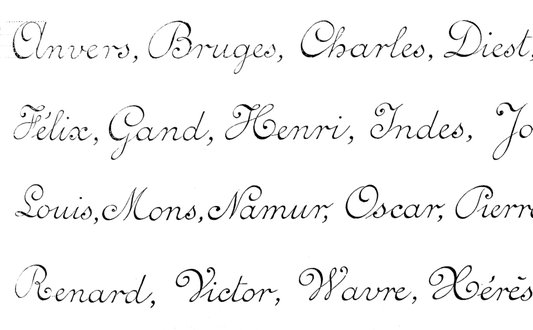 Anvers, Bruges, Charles, Diest,
Félix, Gand, Henri, Indes, Jo
Louis, Mons, Namur, Oscar, Pierre
Renard, Victor, Wavre, Xérès